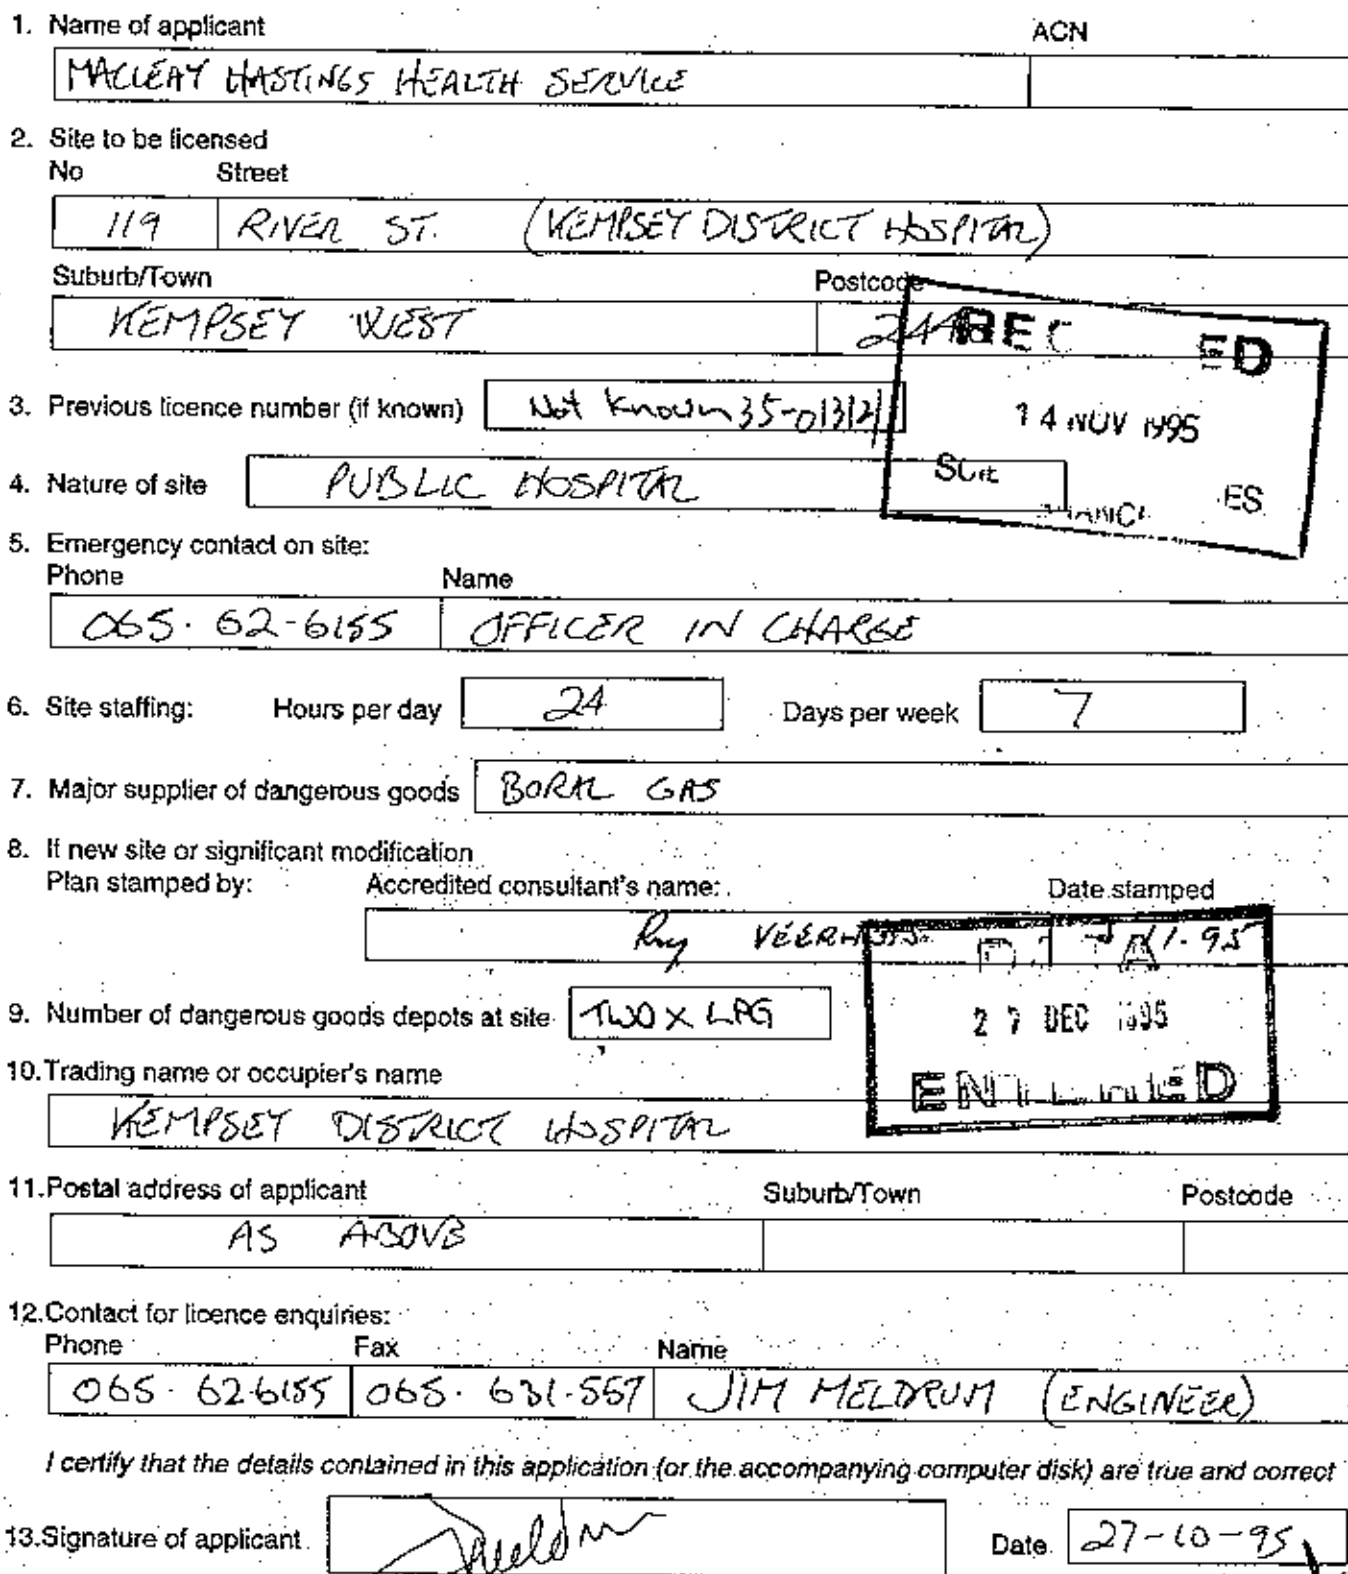 1. Name of applicant ACN
MACLEAY HASTINGS HEALTH SERVICE
2. Site to be licensed
No Street
119 RIVER ST. (KEMPSEY DISTRICT HOSPITAL)
Suburb/Town Postcode
KEMPSEY WEST
14 NOV 1995
3. Previous licence number (if known) Not Known 35-013121
4. Nature of site PUBLIC HOSPITAL
5. Emergency contact on site:
Phone Name
065. 62-6155 OFFICER IN CHARGE
6. Site staffing: Hours per day 24 Days per week 7
7. Major supplier of dangerous goods BORAL GAS
8. If new site or significant modification
Plan stamped by: Accredited consultant's name: Date stamped
27 DEC 1995
ENTERED
9. Number of dangerous goods depots at site TWO X LPG
10. Trading name or occupier's name
KEMPSEY DISTRICT HOSPITAL
11. Postal address of applicant Suburb/Town Postcode
AS ABOVE
12. Contact for licence enquiries:
Phone Fax Name
065. 62-6155 065. 631-557 JIM MELDRUM (ENGINEER)
I certify that the details contained in this application (or the accompanying computer disk) are true and correct
13. Signature of applicant Date 27-10-95